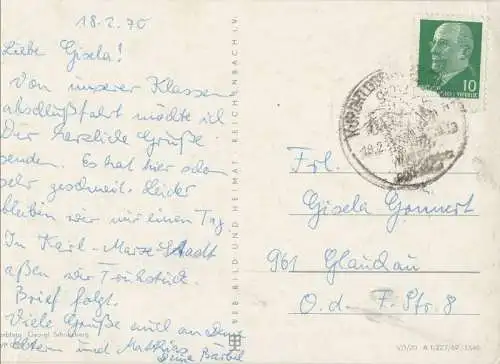 18.2.70
Liebe Gisela!
Von unserer Klassen
abschlußfahrt möchte ich
Dir herzliche Grüße
senden. Es hat hier schon
sehr geschneit. Leider
bleiben wir nur einen Tag.
In Karl-Marx-Stadt
aßen wir Frühstück.
Brief folgt.
Viele Grüße auch an Deine
Eltern und Matthias
Deine Bärbel
VEB BILD UND HEIMAT REICHENBACH I. V.
10
18.2.
Frl.
Gisela Gonnert
961 Glauchau
O.-d.-F.-Str. 8